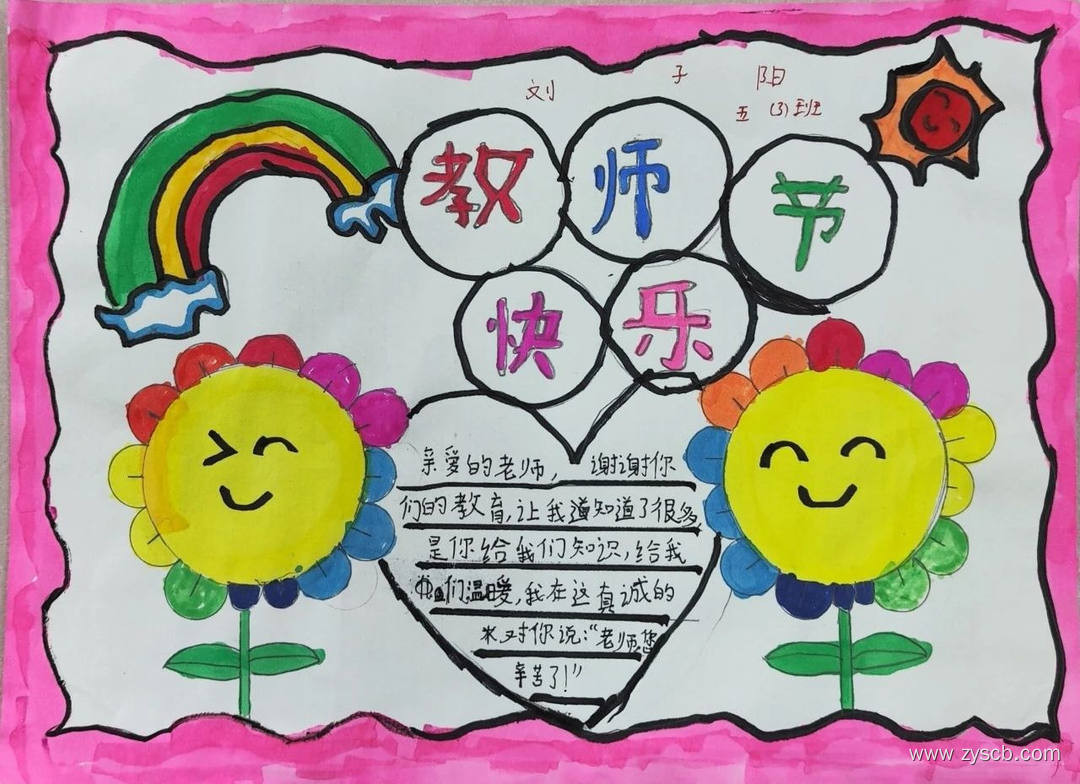 刘 子 阳
五 (3)班
教师节
快乐
亲爱的老师，谢谢你
们的教育，让我道知道了很多
是你给我们知识，给我
们温暖，我在这真诚的
对你说：“老师您
辛苦了！”
www.zyscb.com